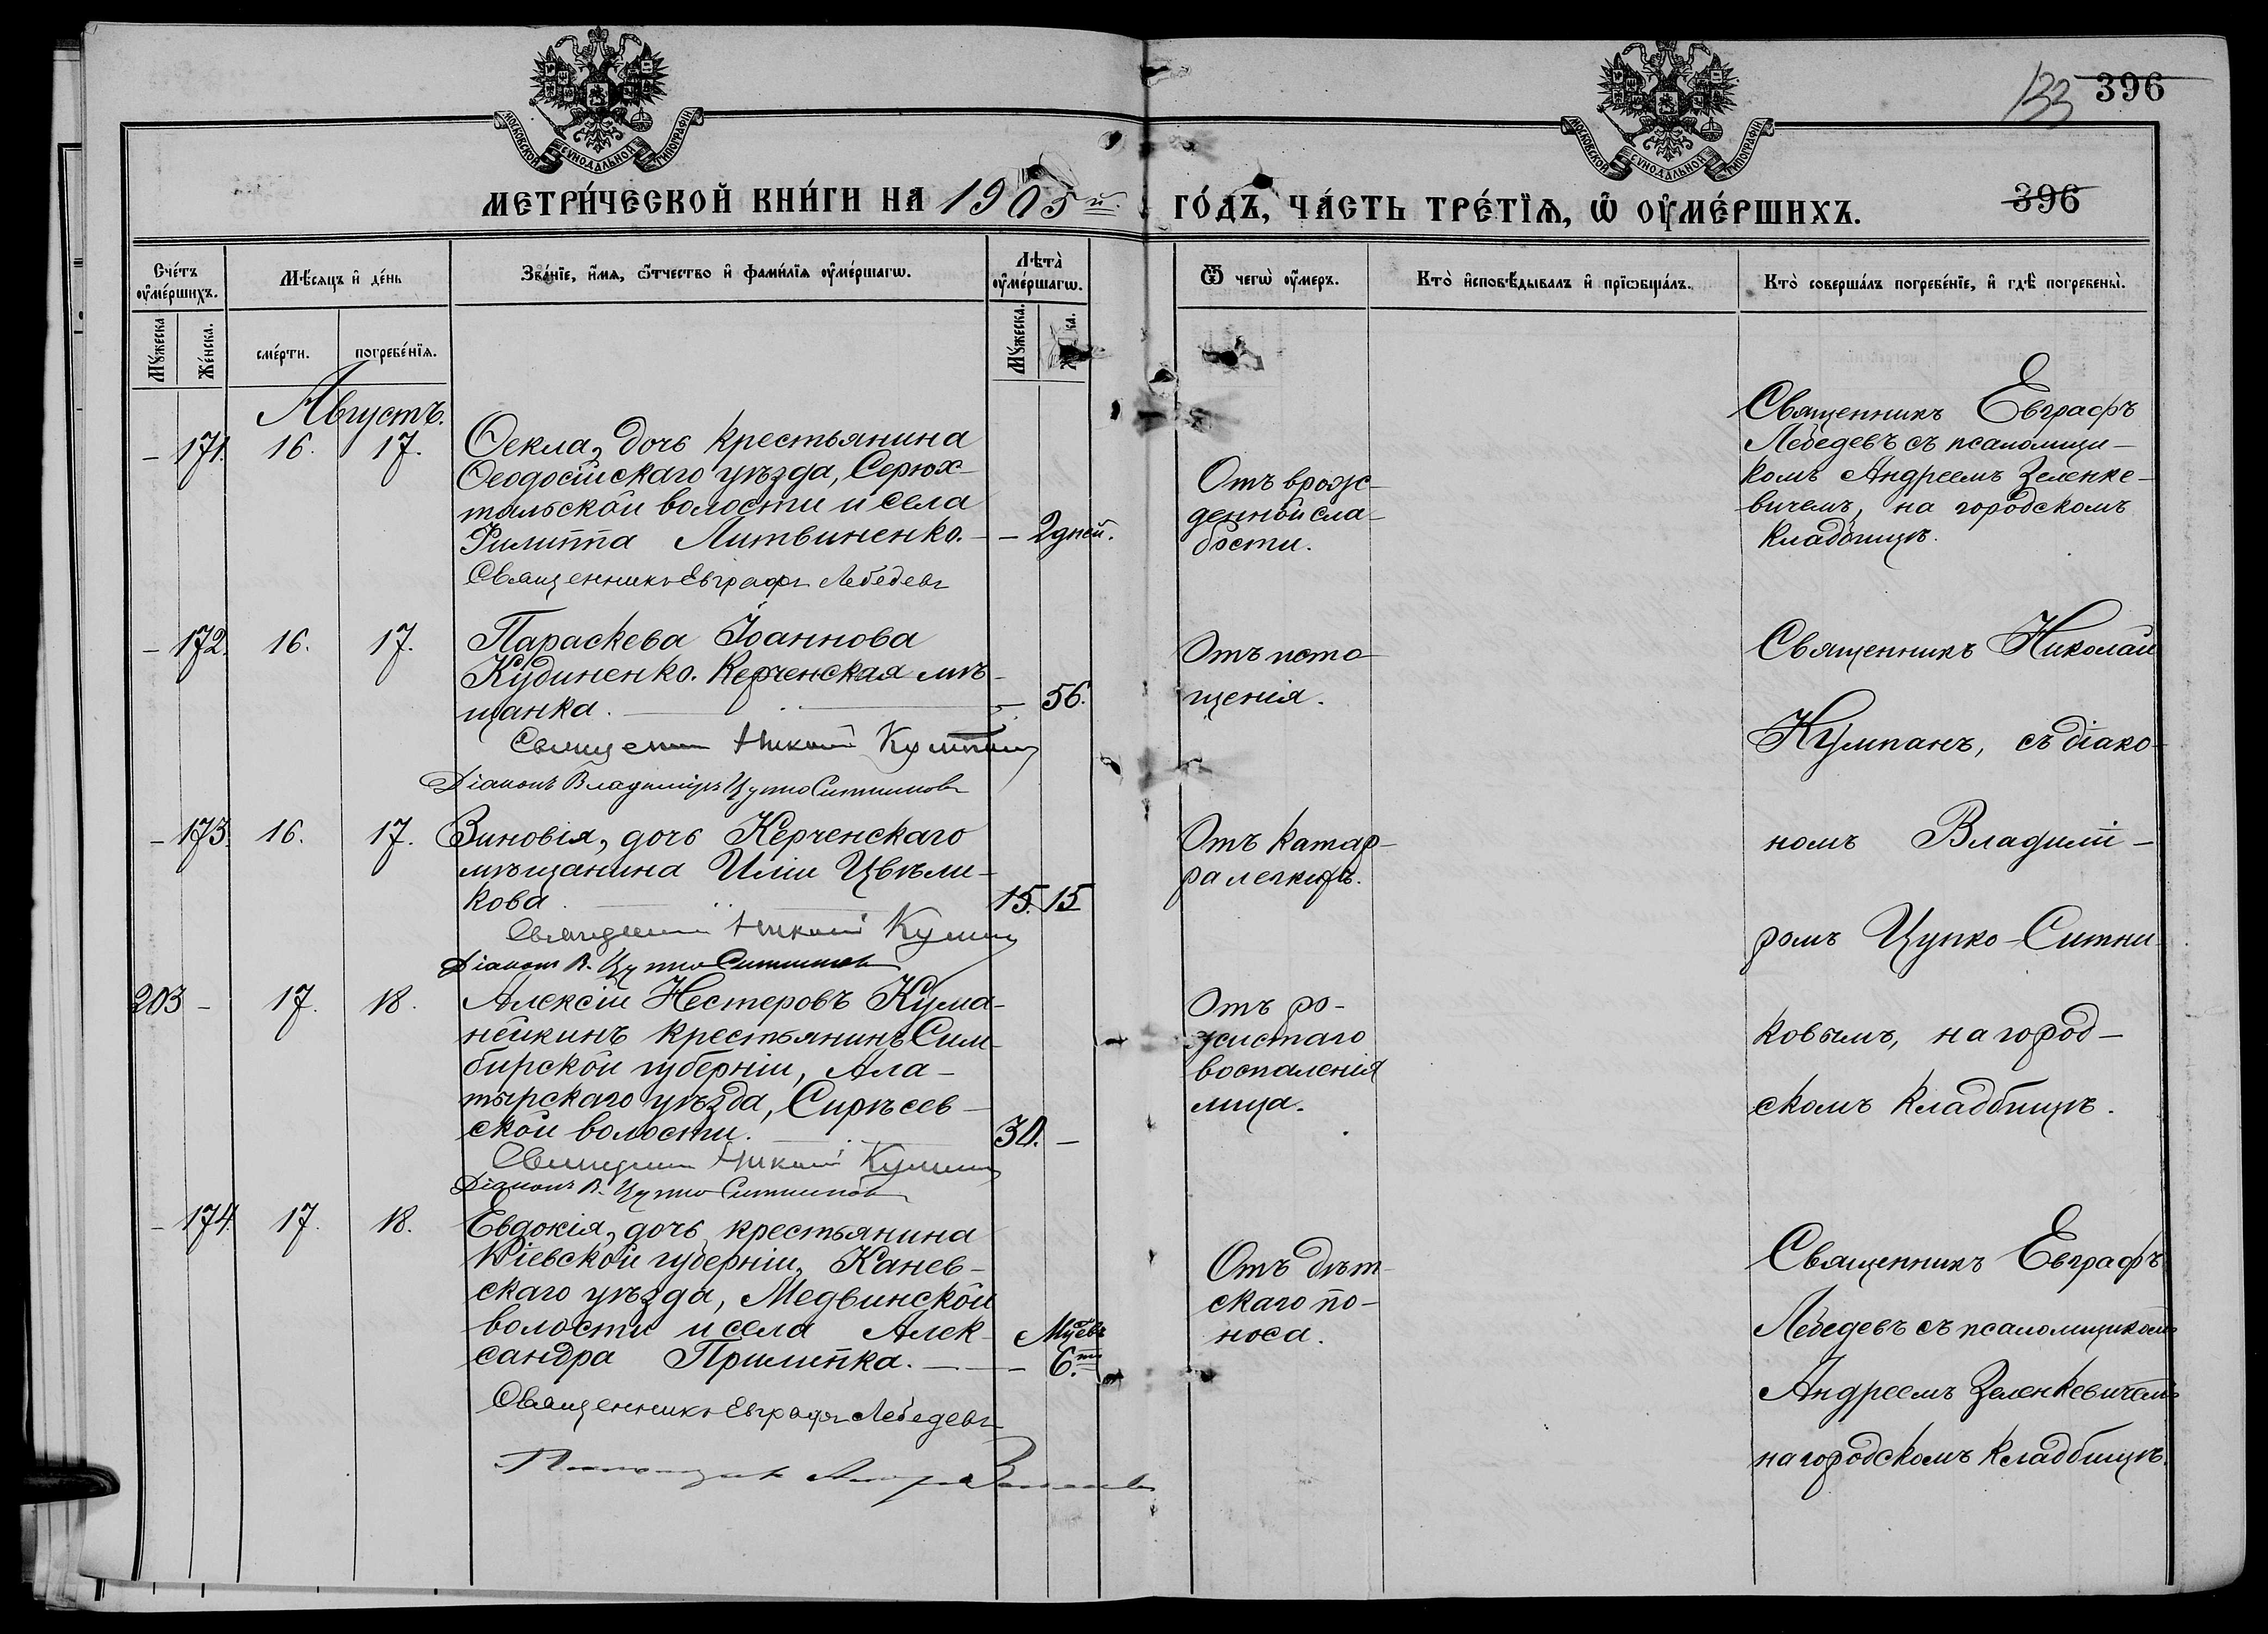 МОСКОВСКОЙ СУНОДАЛЬНОЙ ТИПОГРАФІИ
МОСКОВСКОЙ СУНОДАЛЬНОЙ ТИПОГРАФІИ
133 396
МЕТРИ́ЧЕСКОЙ КНИ́ГИ НА 1905й. ГО́ДЪ, ЧА́СТЬ ТРЕ́ТІѦ, Ѡ҆ ОУ҆МЕ́РШИХЪ.
396
Сче́тъ оу҆ме́ршихъ.
Мѣ́сѧцъ и҆ де́нь
Зва́нїе, и҆́мѧ, ѻ҆́тчество и҆ фами́лїѧ оу҆ме́ршагѡ.
Лѣ́та̀ оу҆ме́ршагѡ.
Ѿ чегѡ̀ оу҆́меръ.
Кто̀ и҆сповѣ́дывалъ и҆ прїѡбща́лъ.
Кто̀ соверша́лъ погребе́нїе, и҆ гдѣ̀ погребены̀.
Мꙋ́жеска
Же́нска.
сме́рти.
погребе́нїѧ.
Мꙋ́жеска.
Августъ.
– 171. 16. 17.
Ѳекла, дочь крестьянина
Ѳеодосійскаго уѣзда, Серюх-
тыльской волости и села
Филиппа Литвиненко. – – 2 дней.
Священникъ Евграфъ Лебедевъ
Отъ врож-
денной сла-
бости.
Священникъ Евграфъ
Лебедевъ съ псаломщи-
комъ Андреемъ Зеленке-
вичемъ, на городскомъ
кладбищѣ.
– 172. 16. 17.
Параскева Іоаннова
Кудиненко. Керченская мѣ-
щанка. – 56.
Священникъ Николай Кумпанъ
Діаконъ Владиміръ Цупко Ситниковъ
Отъ исто-
щенія.
Священникъ Николай
Кумпанъ, съ діако-
номъ Владимі-
ромъ Цупко-Ситни-
ковымъ, на город-
скомъ кладбищѣ.
– 173. 16. 17.
Зиновія, дочь Керченскаго
мѣщанина Иліи Цвѣли-
кова. 15. 15
Священникъ Николай Кумпанъ
Діаконъ В. Цупко Ситниковъ
Отъ катар-
ра легкихъ.
203 – 17. 18.
Алексій Нестеровъ Кума-
нейкинъ крестьянинъ Сим-
бирской губерніи, Ала-
тырскаго уѣзда, Сирѣсев-
ской волости. 30. –
Священникъ Николай Кумпанъ
Діаконъ В. Цупко Ситниковъ
Отъ ро-
жистаго
воспаленія
лица.
– 174. 17. 18.
Евдокія, дочь крестьянина
Кіевской губерніи, Канев-
скаго уѣзда, Медвинской
волости и села Алек-
сандра Прилипка. – – 6.ти Мцевъ
Священникъ Евграфъ Лебедевъ
Отъ дѣт-
скаго по-
носа.
Священникъ Евграфъ
Лебедевъ съ псаломщикомъ
Андреемъ Зеленкевичемъ
на городскомъ кладбищѣ.